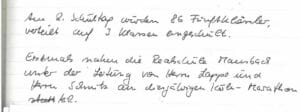 Am 2. Schultag wurden 86 Fünftklässler,
verteilt auf 3 Klassen eingeschult.
Erstmals nahm die Realschule
unter der Leitung von Herrn Zapps und
Herrn Schmitz am diesjährigen Köln-Marathon
teil.